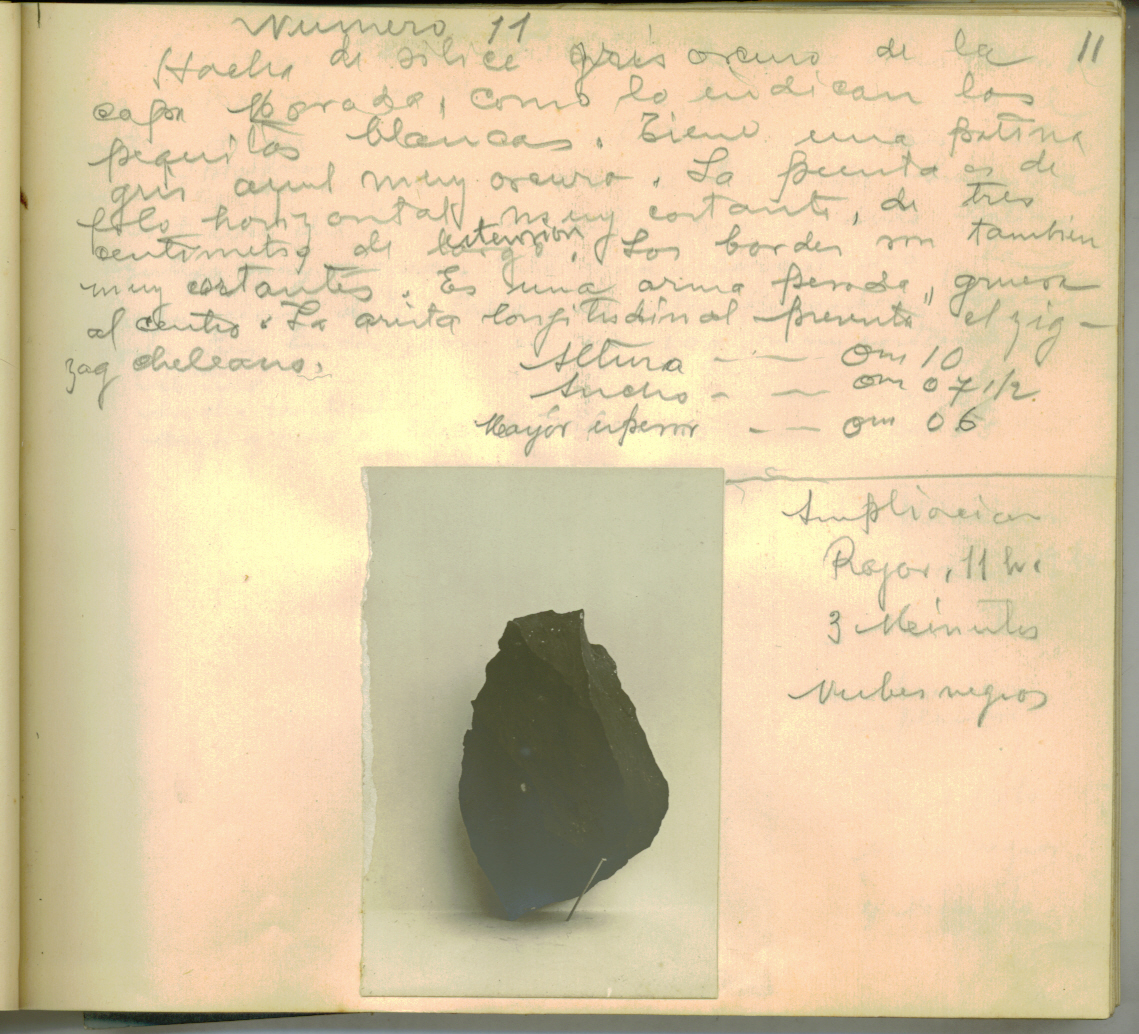 Numero 11
11
Hacha de silice gris oscuro de la
capa morada, como lo indican las
pequitas blancas. Tiene una patina
gris azul muy oscuro. La punta es de
filo horizontal, muy cortante, de tres
centimetros de largo extension. Los bordes son tambien
muy cortantes. Es una arma pesada, gruesa
al centro. La arista longitudinal presenta el zig-
zag chelleano.
Altura -- -- 0m 10
Ancho - -- 0m 07 1/2.
Mayór espesor -- -- 0m 06
Ampliacion
Rojor, 11 h.
3 Minutos
Nubes negras